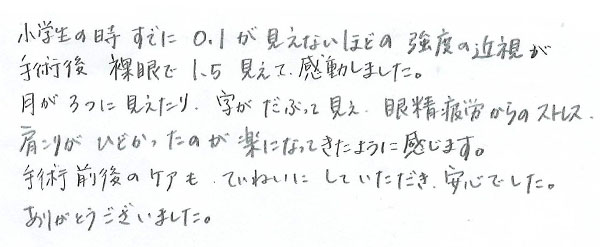 小学生の時 すでに 0.1が見えないほどの 強度の近視が
手術後 裸眼で 1.5 見えて、感動しました。
月が 3つに見えたり、字が だぶって見え、眼精疲労からのストレス、
肩こりが ひどかったのが 楽になってきたように感じます。
手術前後のケアも、ていねいに していただき、安心でした。
ありがとうございました。